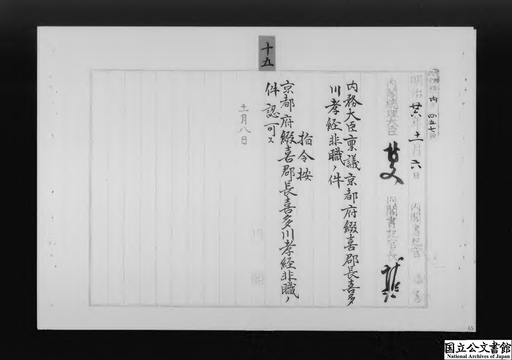 十五
明治廿六年十一月六日
内閣総理大臣
内閣書記官長
内閣書記官
内務大臣稟議京都府綴喜郡長喜多
川孝経非職ノ件
指令按
京都府綴喜郡長喜多川孝経非職ノ
件認可ス
十一月八日
国立公文書館
National Archives of Japan